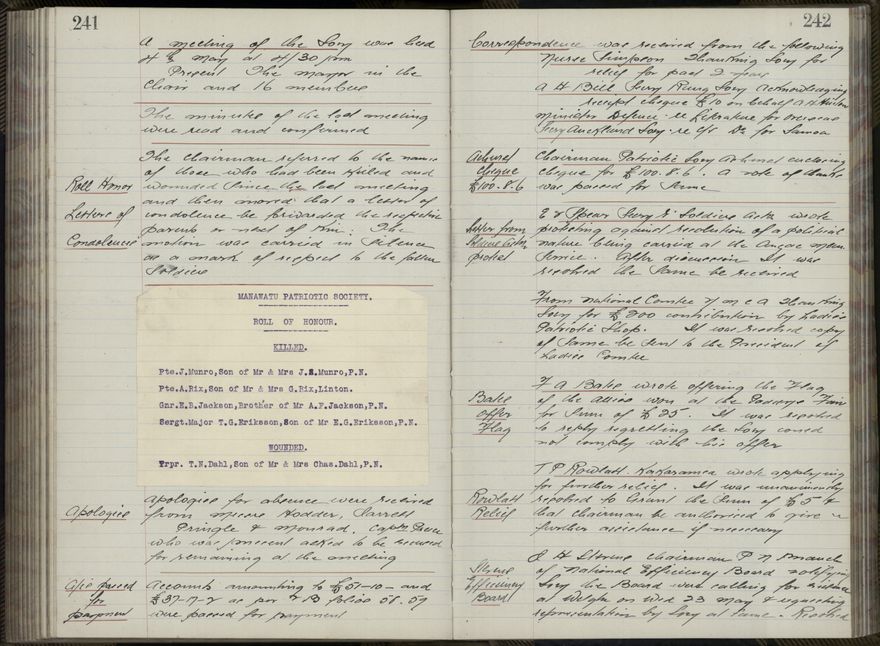 241
A meeting of the Socy was held
May at 7/30 pm
Present The mayor in the
Chair and 16 members
The minutes of the last meeting
were read and confirmed
Roll Honor
Letters of
Condolences
The Chairman referred to the names
of those who had been killed and
wounded since the last meeting
and then moved that a letter of
condolence be forwarded the respective
parents or next of kin. The
motion was carried in silence
as a mark of respect to the fallen
Soldiers
MANAWATU PATRIOTIC SOCIETY.
ROLL OF HONOUR.
KILLED.
Pte.J.Munro,Son of Mr & Mrs J.S.Munro,P.N.
Pte.A.Rix,Son of Mr & Mrs G.Rix,Linton.
Gnr.E.B.Jackson,Brother of Mr A.F.Jackson,P.N.
Sergt.Major T.G.Eriksson,Son of Mr E.G.Eriksson,P.N.
WOUNDED.
Trpr. T.N.Dahl,Son of Mr & Mrs Chas.Dahl,P.N.
Apologies
Apologies for absence were received
from Messrs Hodder,
Pringle & Monrad. Captn
who was present asked to be excused
for remaining at the meeting
A/cs passed
for
payment
Accounts amounting to £51-10- and
£37-7-2 as per folios 58.59
were passed for payment
242
Correspondence was received from the following
Nurse Simpson thanking Socy for
relief for past 2 years
A H Bell Secy Socy acknowledging
receipt cheque £10 on behalf
Minister Defence re Literature for overseas
Secy Auckland Socy re for Samoa
Ashurst
cheque
£100.8.6
Chairman Patriotic Socy Ashurst enclosing
cheque for £100.8.6. A vote of thanks
was passed for same
Letter from
protest
E J Secy Soldiers wrote
protesting against resolution of a political
nature being carried at the Anzac
Service. After discussion it was
resolved the same be received
From National Comtee Y M C A thanking
Socy for £200 contribution by Ladies
Patriotic Shop. It was resolved copy
of same be sent to the President of
Ladies Comtee
Bates
offer
Flag
F A Bates wrote offering the Flag
of the Allies won at the Fair
for sum of £25. It was resolved
to reply regretting the Socy could
not comply with his offer
Rowlatt
Relief
T P Rowlatt Kakaramea wrote applying
for further relief. It was unanimously
resolved to grant the sum of £5 &
that chairman be authorised to give
further assistance if necessary
Efficiency
Board
J H chairman P N Branch
of National Efficiency Board notifying
Socy the Board were calling for evidence
at Wellgtn on Wed 23 May & requesting
representation by Socy at same. Resolved